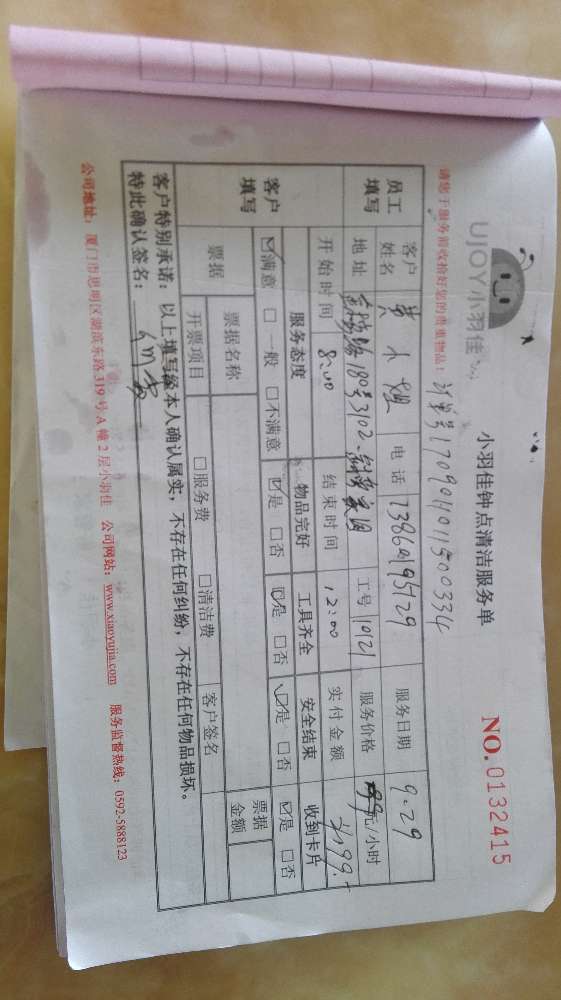 UJOY小羽佳
小羽佳钟点清洁服务单
NO.0132415
请您于服务前收拾好您的贵重物品！
订单号17090110115000334
员工填写
客户姓名
电话 13860195129
服务日期 9.29
地址 180号3102.
工号 10121
服务价格 元/小时
开始时间 8:00
结束时间 12:00
实付金额 199.
客户填写
服务态度 物品完好 工具齐全 安全结束 收到卡片
☑满意 □一般 □不满意 ☑是 □否 ☑是 □否 ☑是 □否 ☑是 □否
票据 票据名称 票据金额
开票项目 □服务费 □清洁费 客户签名
客户特别承诺：以上填写经本人确认属实，不存在任何纠纷，不存在任何物品损坏。
特此确认签名：
公司地址：厦门市思明区湖滨东路319号A幢2层小羽佳 公司网站：www.xiaoyujia.com 服务监督热线：0592-5888123